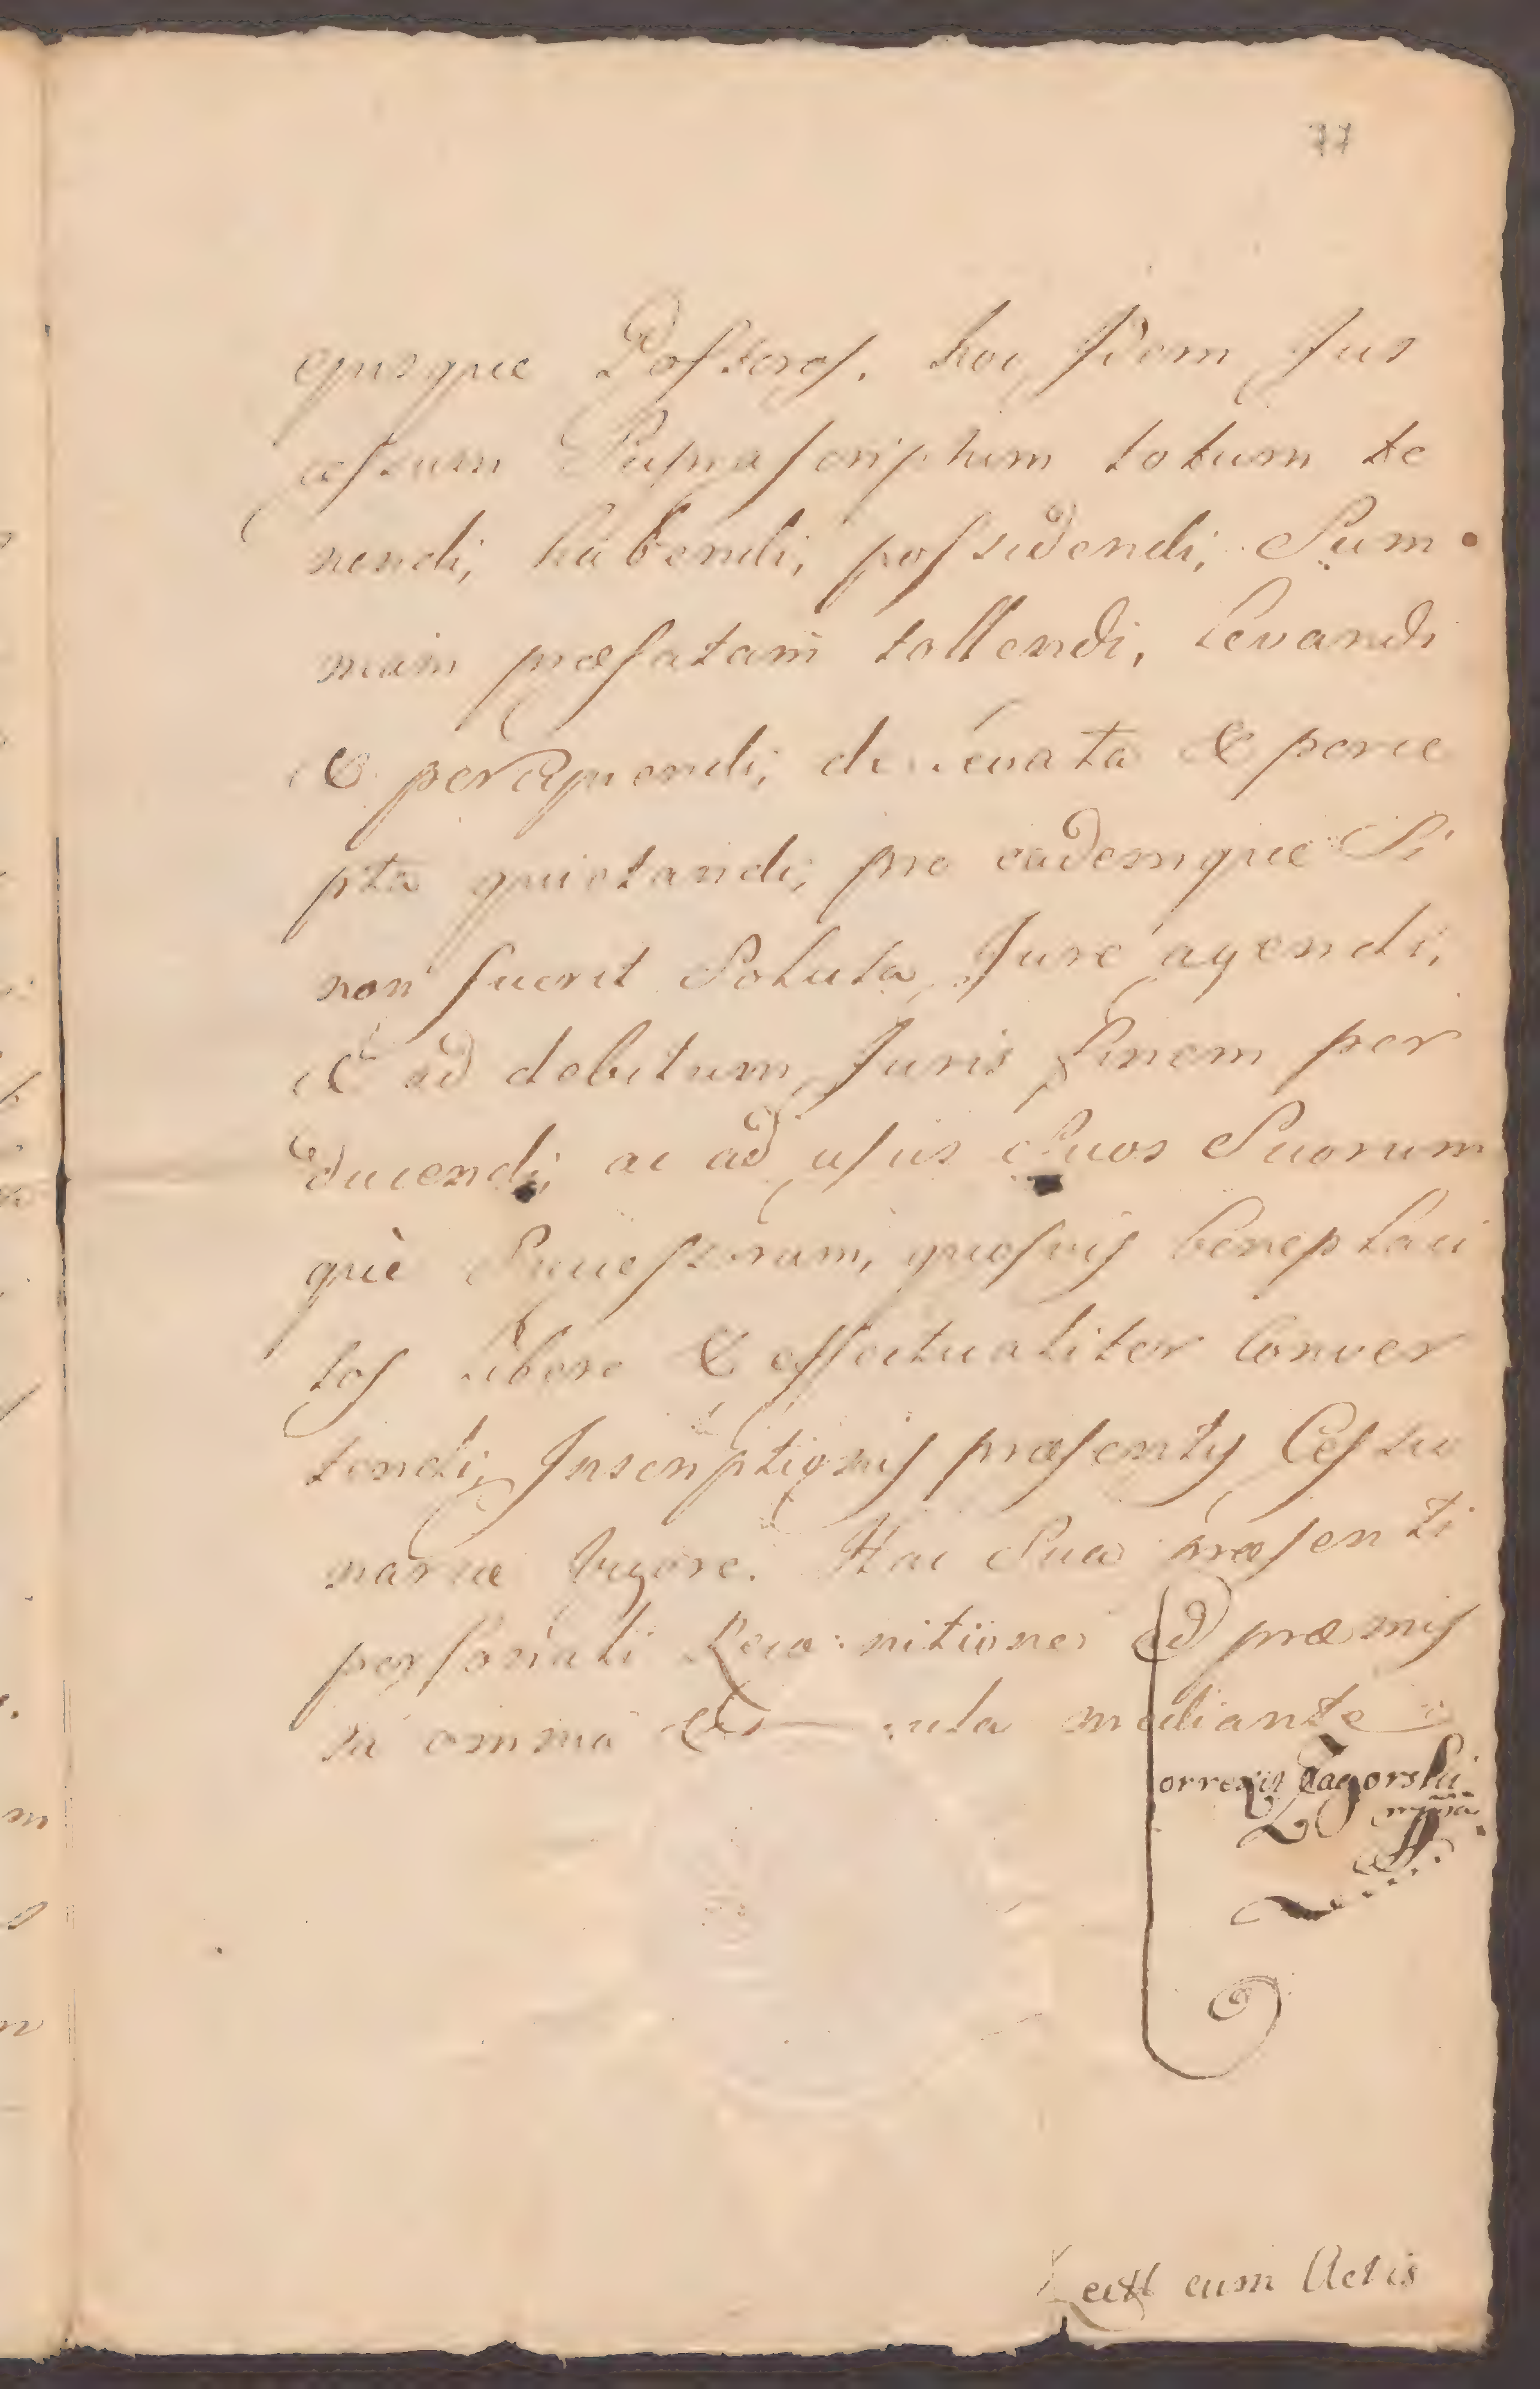 77
ejusque Possores. hoc idem Jus
cessum Suprascriptum totum te
nendi, habendi, possidendi, Sum
mam præfatam tollendi, levandi
& percipiendi, de levata & perce
pta quietandi, pro eademque Si
non fuerit Soluta, Jure agendi,
& ad debitum Juris finem per
ducendi, ac ad usus Suos Suorum
què Succession, quosvis beneplaci
tos libere & effectualiter Conver
tendi, Inscriptionis præsentis Cessio
nariæ vigore. Hac Sua præsenti
personali Recognitione ad præmis
sa omnia mediante
Correxit Zagorski
mppa
Lectt cum Actis